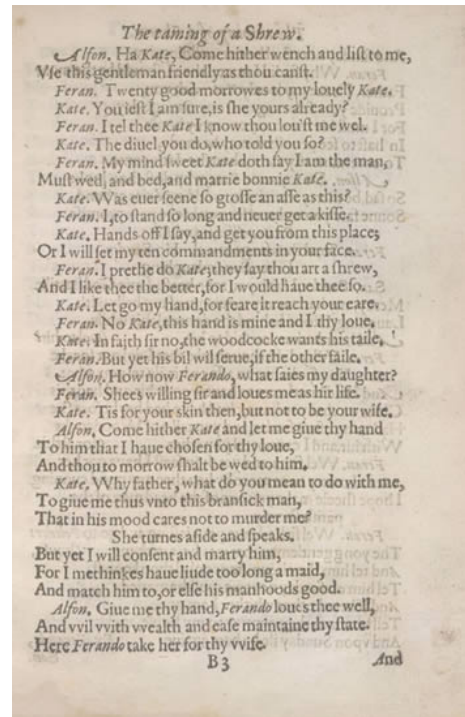 The taming of a Shrew.
Alfon. Ha Kate, Come hither wench and liſt to me,
Vſe this gentleman friendly as thou canſt.
Feran. Twenty good morrowes to my louely Kate.
Kate. You ieſt I am ſure, is ſhe yours already?
Feran. I tel thee Kate I know thou lou'ſt me wel.
Kate. The diuel you do, who told you ſo?
Feran. My mind ſweet Kate doth ſay I am the man,
Muſt wed, and bed, and marrie bonnie Kate.
Kate. Was euer ſeene ſo groſſe an aſſe as this?
Feran. I, to ſtand ſo long and neuer get a kiſſe.
Kate. Hands off I ſay, and get you from this place;
Or I will ſet my ten commandments in your face.
Feran. I prethe do Kate; they ſay thou art a ſhrew,
And I like thee the better, for I would haue thee ſo.
Kate. Let go my hand, for feare it reach your eare.
Feran. No Kate, this hand is mine and I thy loue.
Kate. In faith ſir no, the woodcocke wants his taile.
Feran. But yet his bil wil ſerue, if the other faile.
Alfon. How now Ferando, what ſaies my daughter?
Feran. Shees willing ſir and loues me as hir life.
Kate. Tis for your skin then, but not to be your wife.
Alfon. Come hither Kate and let me giue thy hand
To him that I haue choſen for thy loue,
And thou to morrow ſhalt be wed to him.
Kate. Why father, what do you mean to do with me,
To giue me thus vnto this branſick man,
That in his mood cares not to murder me?
She turnes aſide and ſpeaks.
But yet I will conſent and marry him,
For I methinkes haue liude too long a maid,
And match him to, or elſe his manhoods good.
Alfon. Giue me thy hand, Ferando loues thee well,
And vvil vvith vvealth and eaſe maintaine thy ſtate.
Here Ferando take her for thy vvife.
B3 And